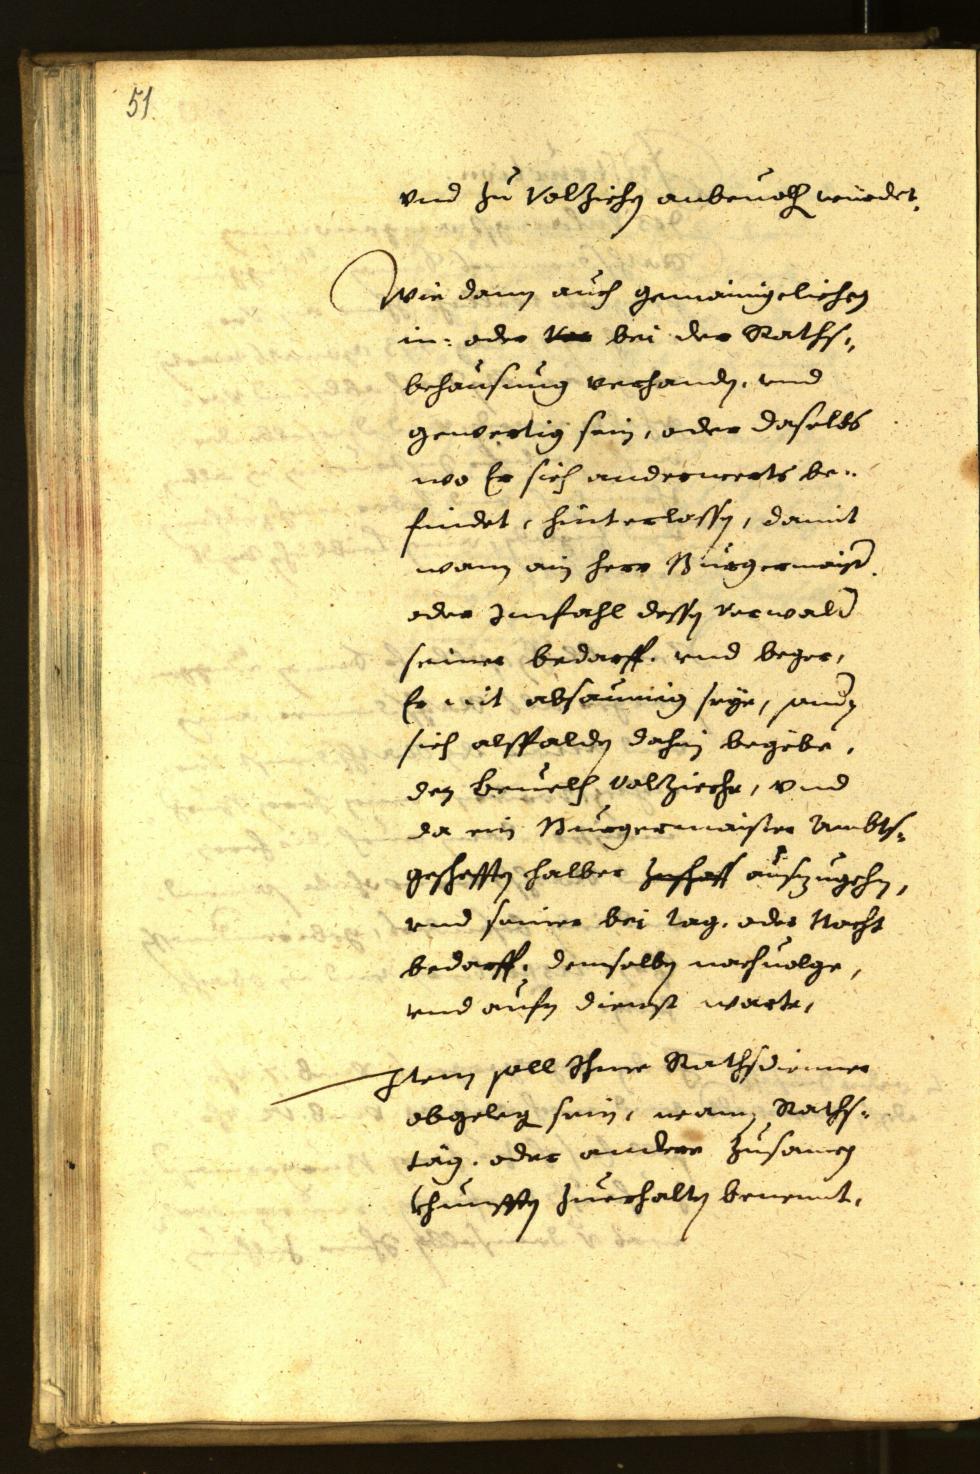 51
vnd zu Volziehen anbeuolhen würdet.
Wie dann auch gemainigelichen
in: oder vor bei der Raths-
behausung verhanden, vnd
gewertig sein, oder daselbs
wo Er sich anderwerts be-
findet, hinterlassen, damit
wann ain herr Burgermaister
oder Imfahl dessen verwalter
seiner bedarff, vnd beger,
Er nit absaumig seye, sonder
sich alsspalden dahin begebe,
den beuelch volziehe, vnd
da ein Burgermaister Ambts-
gescheffen halber auszugehen,
vnd seiner bei tag, oder Nacht
bedarff, demselben nachuolge,
vnd aufn dienst warte,
Item soll Ihme Rathsdienner
obgelegen sein, wann Raths-
täg, oder andere zusamen
khunfften zuerhalten benennt,